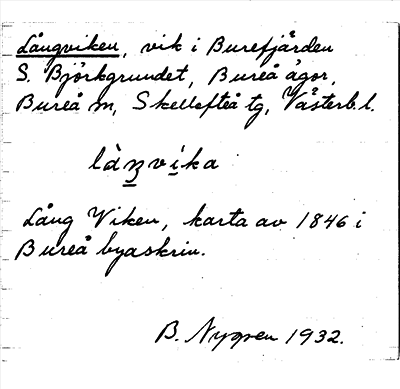 Långviken, vik i Burefjärden
S. Björkgrundet, Bureå ägor,
Bureå sn, Skellefteå tg, Västerb. l.
làŋvika
Lång Viken, karta av 1846 i
Bureå byaskrin.
B. Nygren 1932.